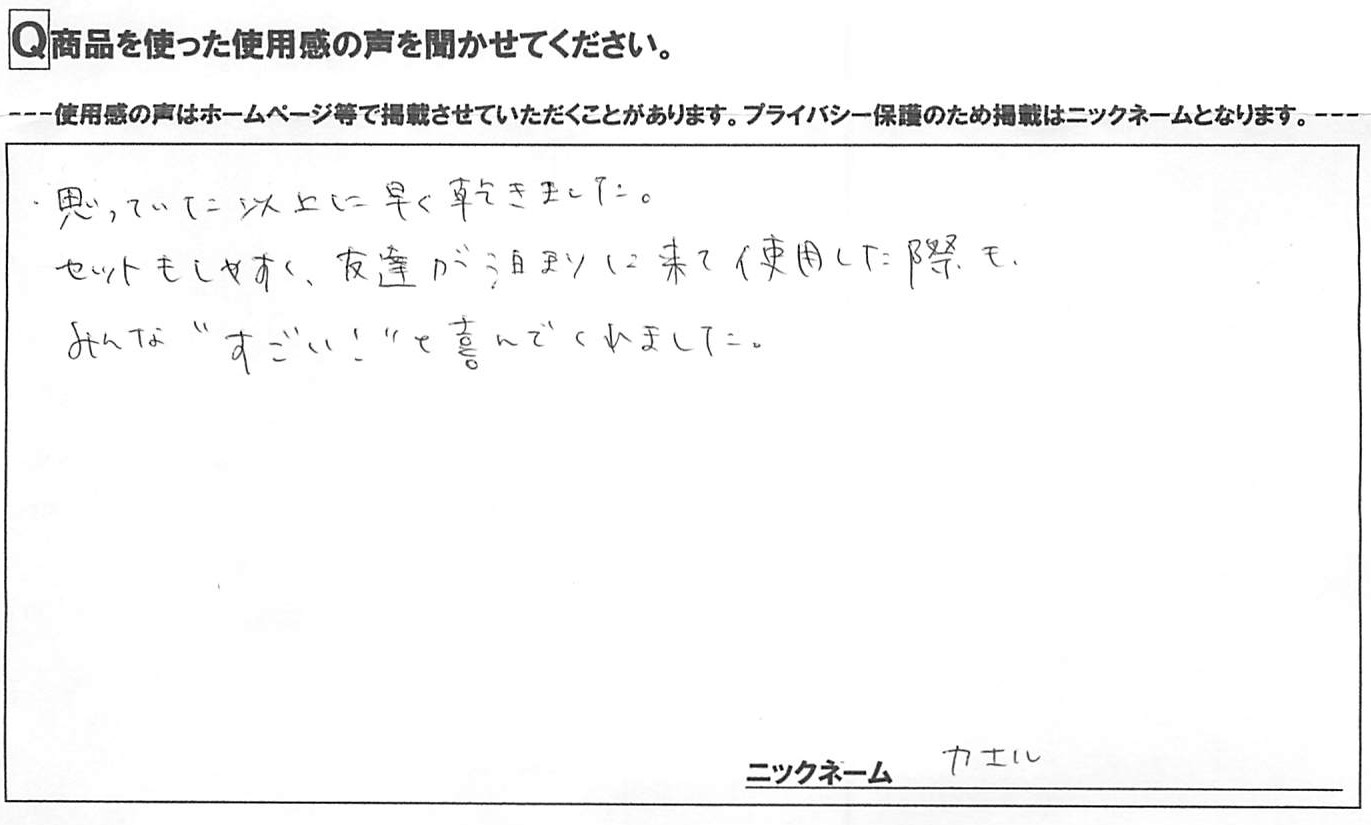 Q商品を使った使用感の声を聞かせてください。
---使用感の声はホームページ等で掲載させていただくことがあります。プライバシー保護のため掲載はニックネームとなります。---
・思っていた以上に早く乾きました。
セットもしやすく、友達が泊まりに来て使用した際も、
みんな"すごい！"と喜んでくれました。
ニックネーム カエル